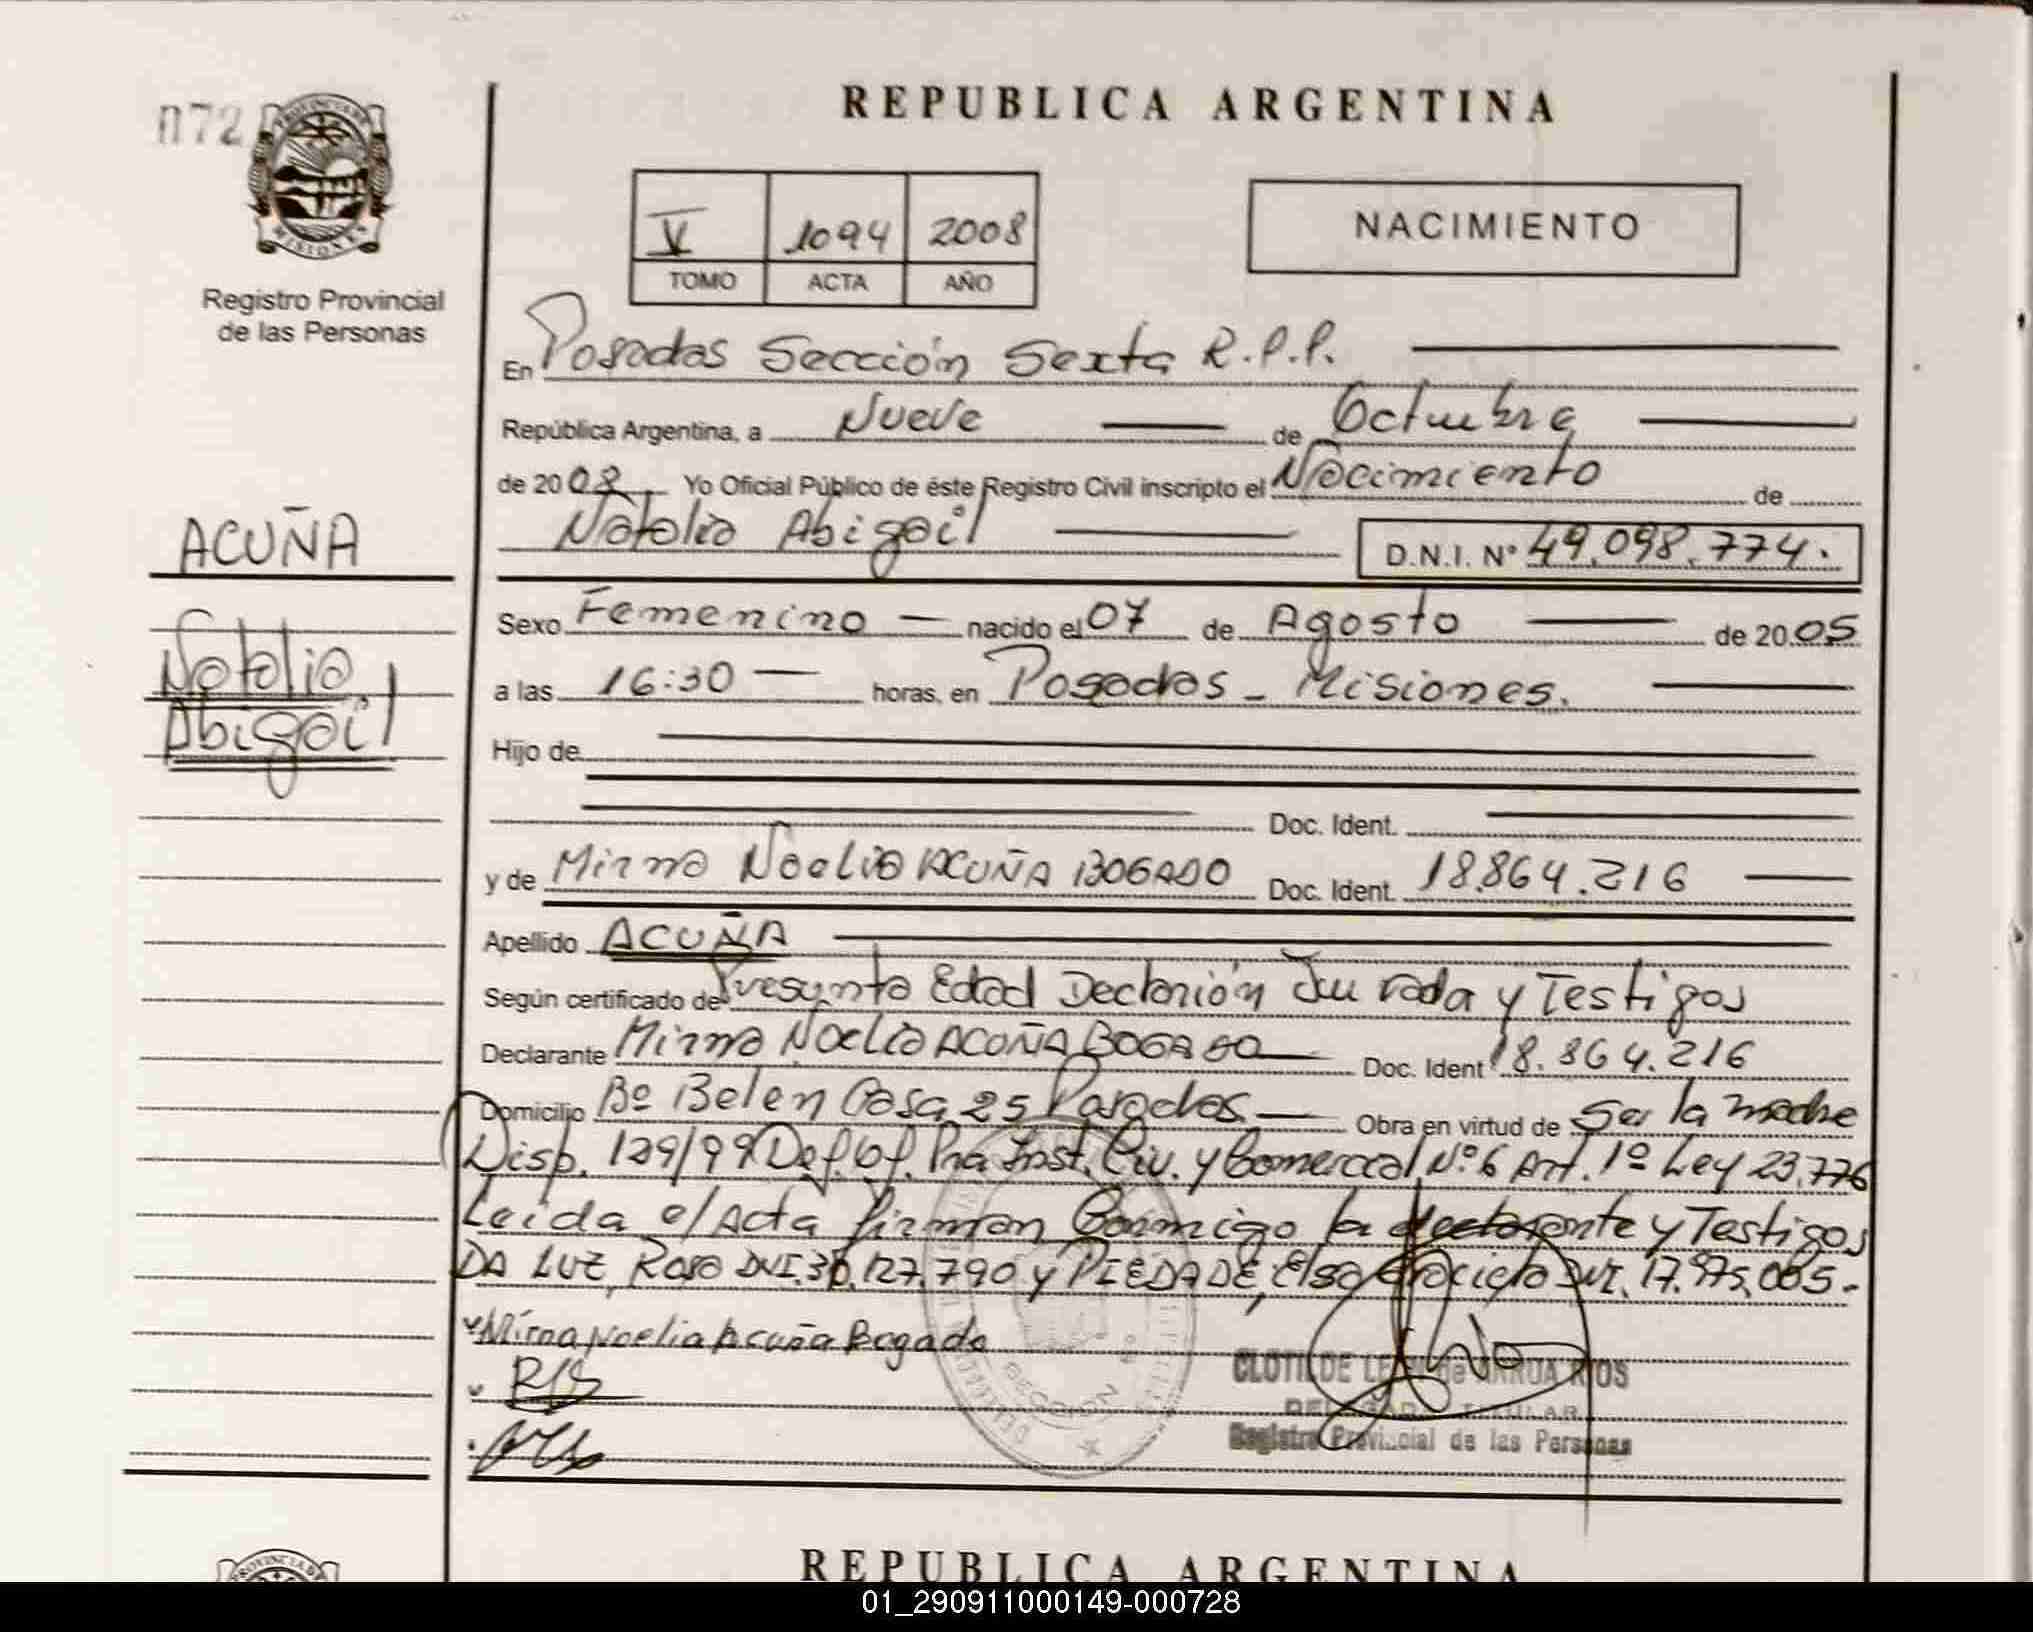 072
PROVINCIA DE
MISIONES
Registro Provincial
de las Personas
REPUBLICA ARGENTINA
V 1094 2008
TOMO ACTA AÑO
NACIMIENTO
En Posadas Sección Sexta R.P.P.
República Argentina, a Nueve de Octubre
de 2008 Yo Oficial Público de éste Registro Civil inscripto el Nacimiento de
Natalia Abigail D.N.I. Nº 49.098.774.
ACUÑA
Natalia
Abigail
Sexo Femenino nacido el 07 de Agosto de 2005
a las 16:30 horas, en Posadas - Misiones.
Hijo de
Doc. Ident.
y de Mirna Noelia ACUÑA BOGADO Doc. Ident. 18.864.216
Apellido ACUÑA
Según certificado de Presunta Edad Declarión Jurada y Testigos
Declarante Mirna Noelia ACUÑA BOGADO Doc. Ident 18.864.216
Domicilio Bº Belen Casa 25 Posadas Obra en virtud de Ser la madre
Disp. 129/99 Def. Of. Pra Inst. Civ. y Comercial Nº 6 Art. 1º Ley 23.776
Leida e/ Acta firman Conmigo la declarante y Testigos
DA LUZ, Rosa DNI. 30.127.790 y PIEDADE, Elsa DNI. 17.975.005.-
Mirna Noelia Acuña Bogado
CLOTILDE de ARRUA RIOS
DELEGADA TITULAR
Registro Provincial de las Personas
REPUBLICA ARGENTINA
01_290911000149-000728